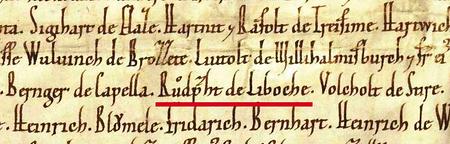 ta. Sighart de Hale. Hartnit ⁊ Rafolt de Irifime. Hartwich
Wulvinch de Brozzete. Liutolt de Willihalmisburch ⁊ fr̄ ei᾽
. Bernger de Capella. Růdp̄ht de Liboche. Volcholt de Sure.
. Heinrich. Blǒmele. Fridarich. Bernhart. Heinrich de W